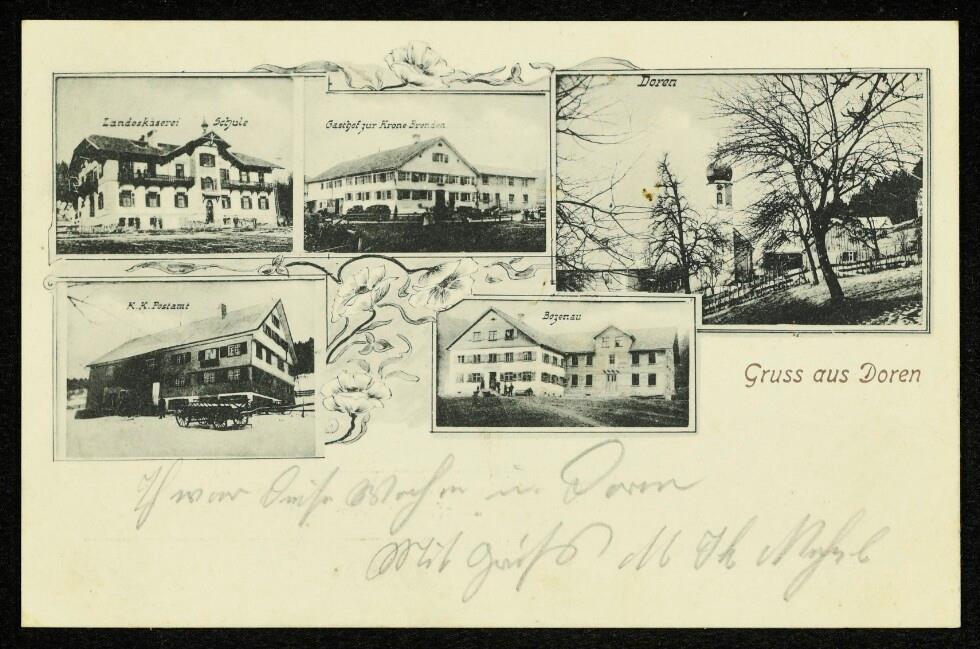 Landeskäserei Schule
Gasthof zur Krone Brenden
Doren
K. K. Postamt
Bozenau
Gruss aus Doren
Ich war diese Woche in Doren
Mit Gruß M Th